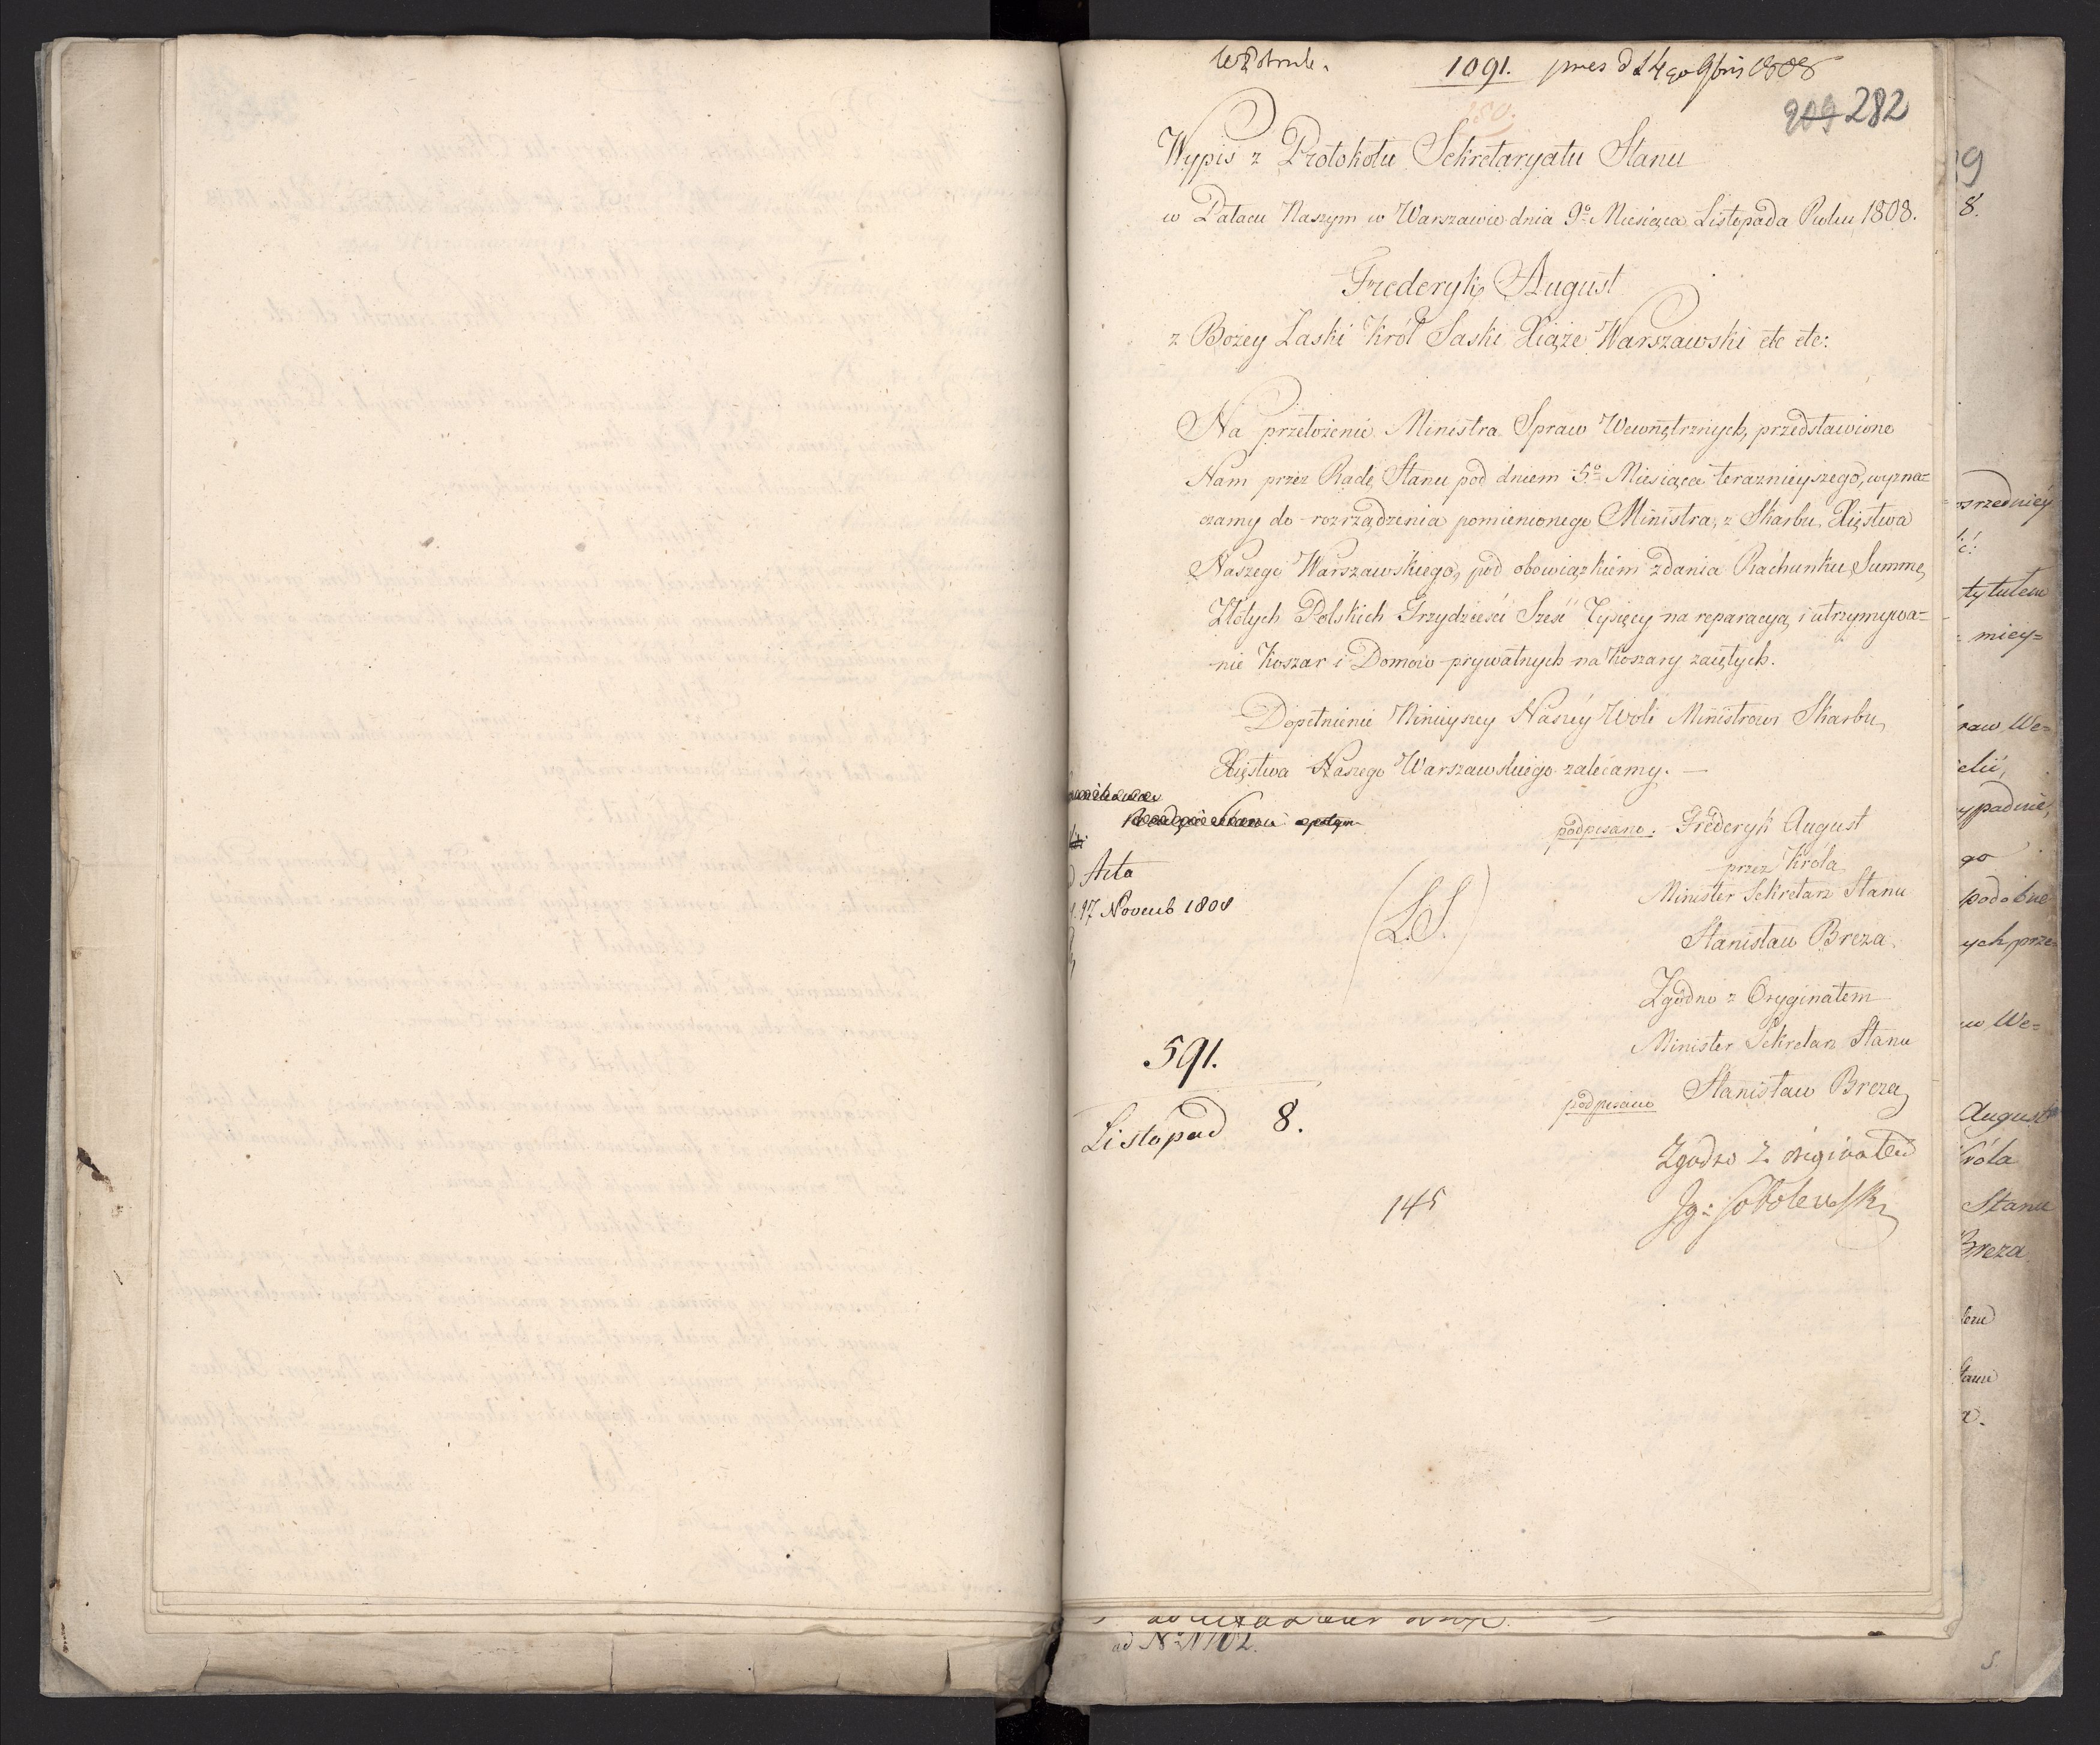 1091. pres d 14go 9bris 1808
209 282
Wypis z Protokołu Sekretaryatu Stanu
w Pałacu Naszym w Warszawie dnia 9º Miesiąca Listopada Roku 1808.
Frederyk August
z Bożey Łaski Król Saski Xiąże Warszawski etc etc:
Na przełożenie Ministra Spraw Wewnętrznych, przedstawione
Nam przez Radę Stanu pod dniem 5º Miesiąca teraznieyszego, wyzna=
czamy do rozrządzenia pomienionego Ministra, z Skarbu Xięstwa
Naszego Warszawskiego, pod obowiązkiem zdania Rachunku, Summę
Złotych Polskich Trzydzieści Sześć Tysięcy na reparacyą i utrzymywa=
nie Koszar i Domów prywatnych na Koszary zaiętych.
Dopełnienie Ninieyszey Naszéy Woli Ministrowi Skarbu
Xięstwa Naszego Warszawskiego zalécamy. —
podpisano. Frederyk August
przez Króla
Minister Sekretarz Stanu
Stanisław Breza.
(L.S.)
Acta
17 Novemb 1808
Zgodno z Oryginałem
Minister Sekretarz Stanu
podpisano Stanisław Breza
591.
Listopad 8.
Zgodno z originałem
Ig: Sobolewski
145
ad Nº
9
8.
osrzedniéy
tytułem
= miey=
raw We=
ypadnie,
go
podobne
ych, prze=
w We=
August
Króla
Stanu
Breza